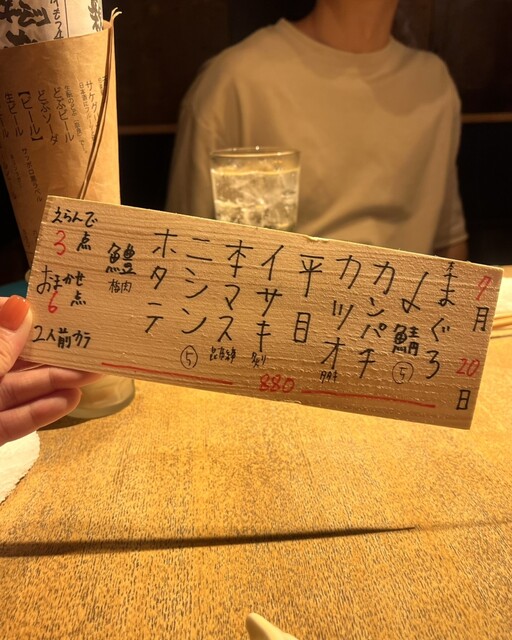 7月20日
本まぐろ
〆鯖⑤
カンパチ
カツオ
平目
イサキ 炙り
本マス 昆布〆
ニシン⑤
ホタテ
鱧 梅肉
880
えらんで
3点
おまかせ
6点
2人前カラ
【ビール】
どぶビール
どぶソーダ
生ビール